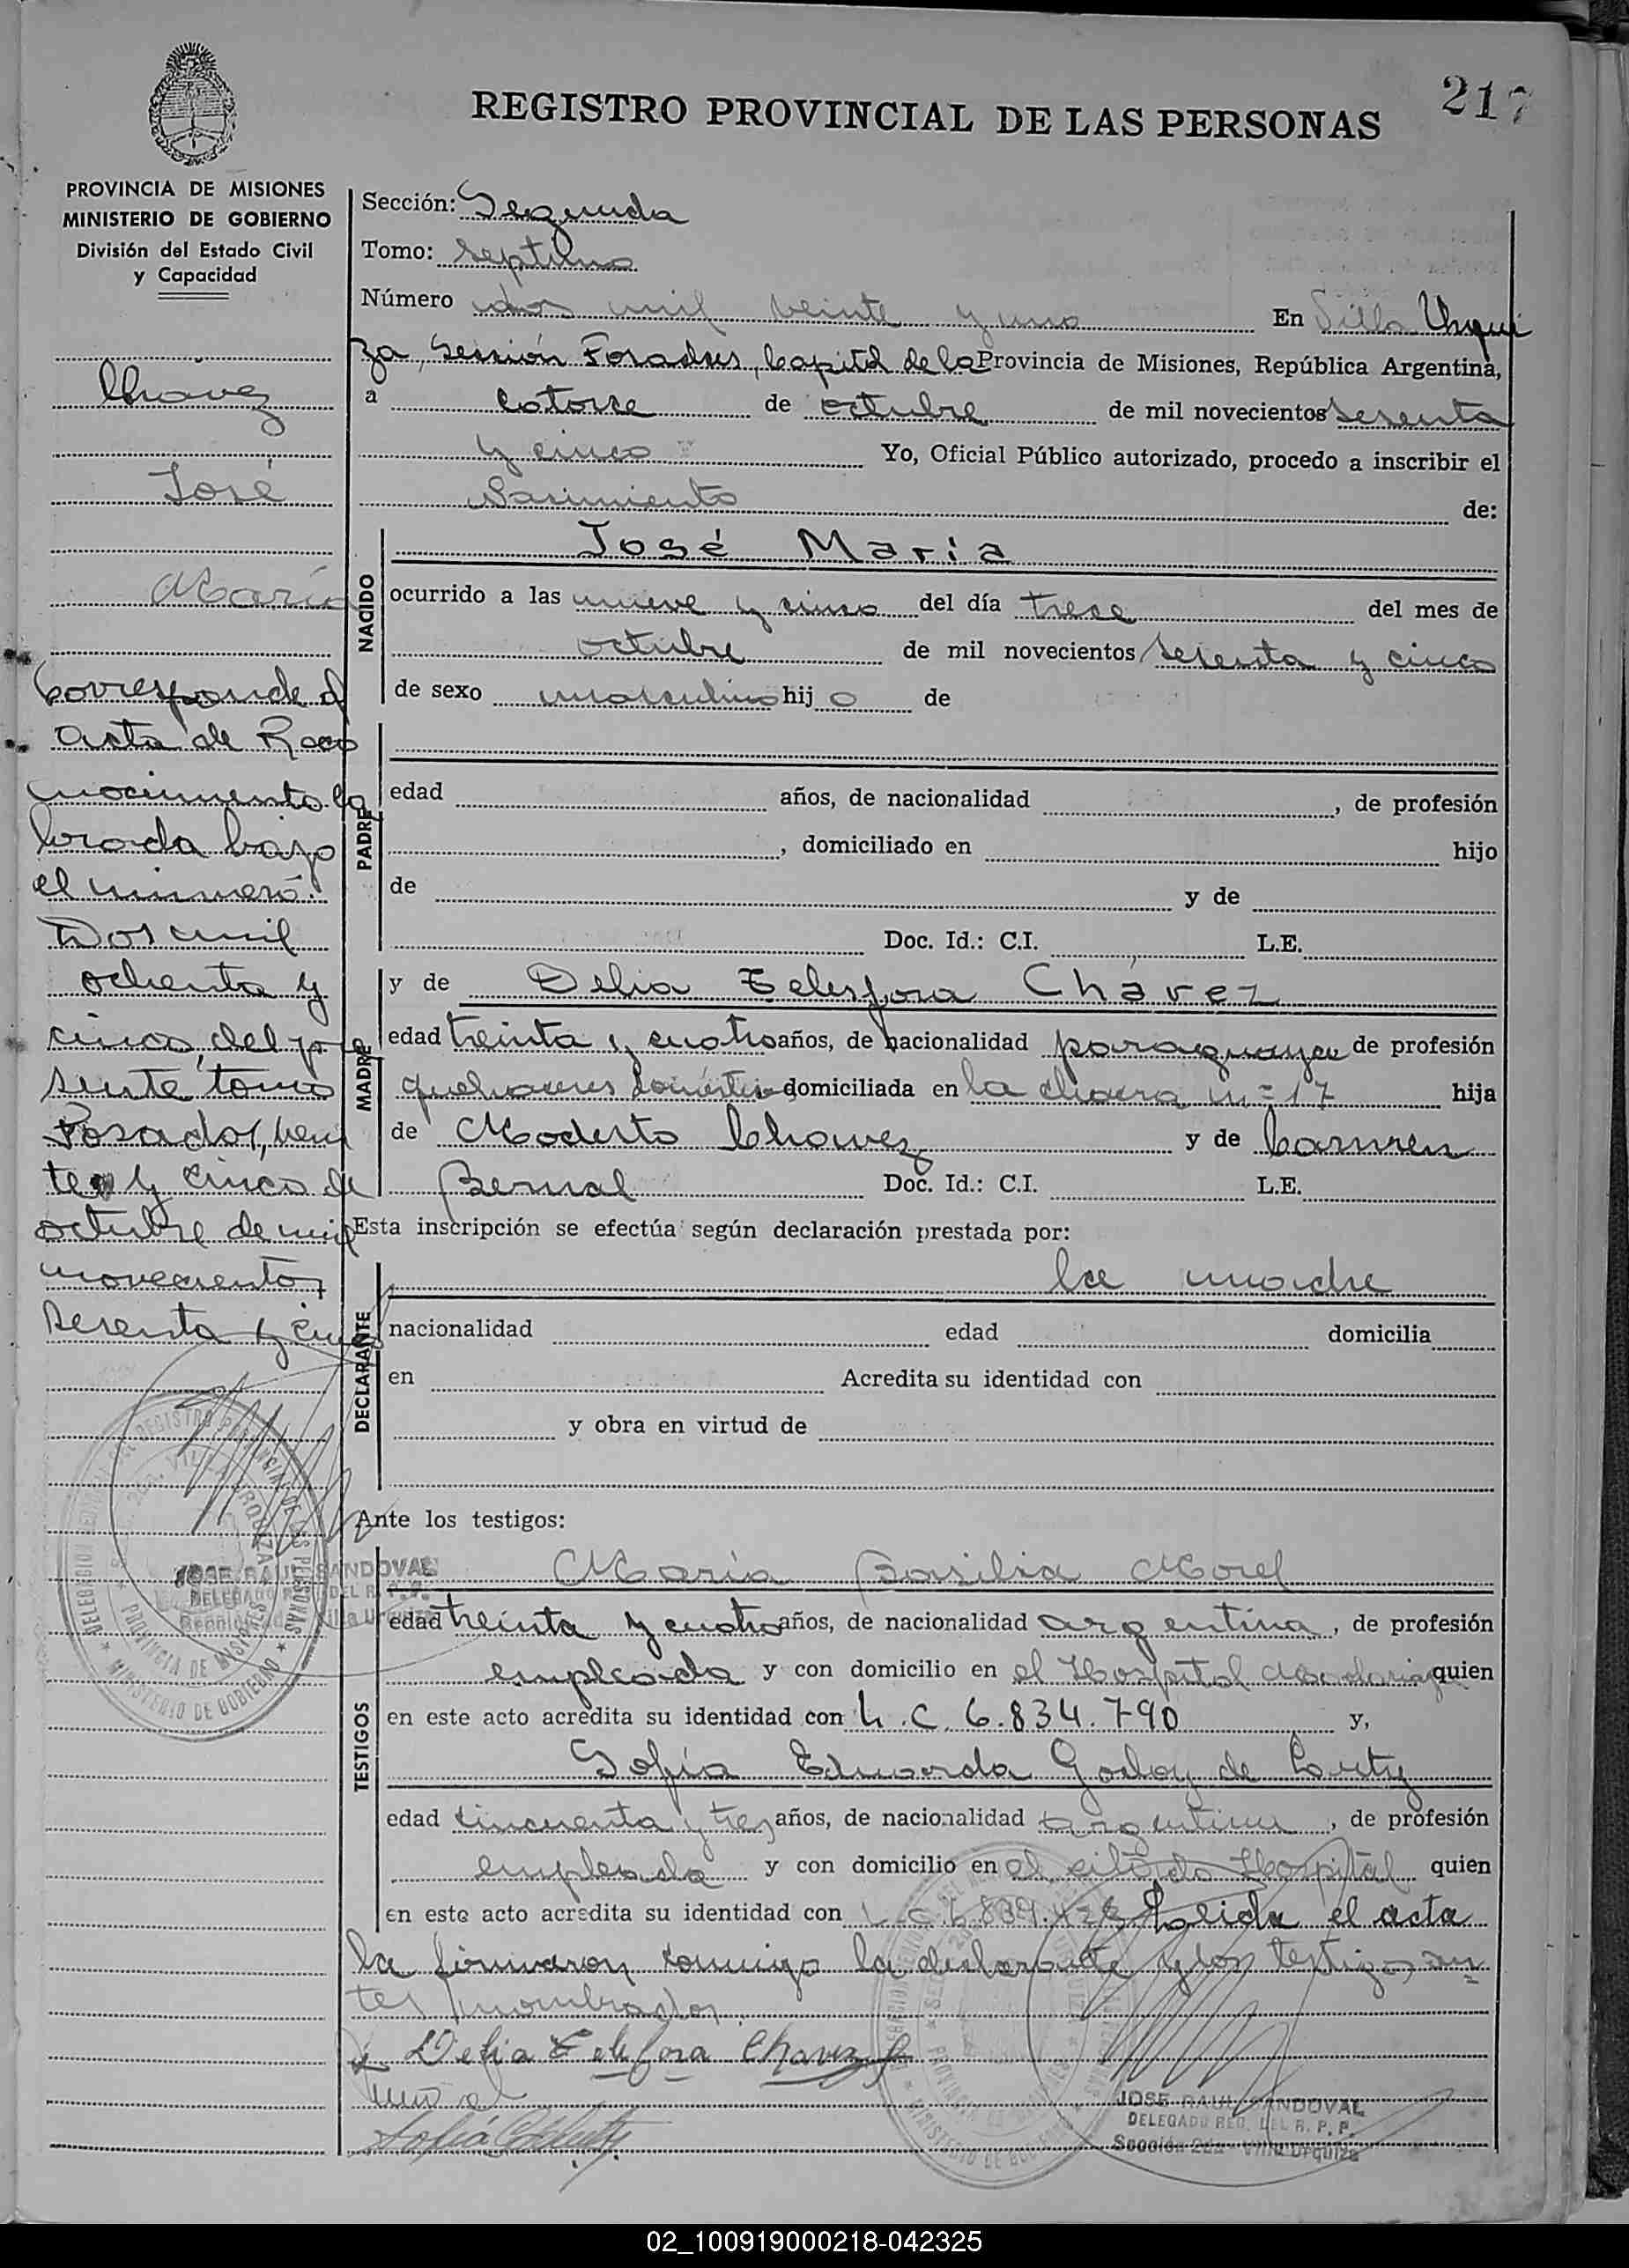 217
REGISTRO PROVINCIAL DE LAS PERSONAS
PROVINCIA DE MISIONES
MINISTERIO DE GOBIERNO
División del Estado Civil
y Capacidad
Chávez
José
María
Corresponde al
acta de Reco
nocimiento la
brada bajo
el número:
Dos mil
ochenta y
cinco, del pre
sente tomo
Posadas, vein
te y cinco de
octubre de mil
novecientos
sesenta y cinco
JOSE RAUL SANDOVAL
DELEGADO REG. DEL R. P. P.
Sección 2da - Villa Urquiza
DELEGACION DEL REGISTRO PROVINCIAL DE LAS PERSONAS
VILLA URQUIZA
PROVINCIA DE MISIONES
MINISTERIO DE GOBIERNO
Sección: Segunda
Tomo: Septimo
Número dos mil veinte y uno En Villa Urqui
za, Sección Posadas, Capital de la Provincia de Misiones, República Argentina,
a catorce de octubre de mil novecientos sesenta
y cinco Yo, Oficial Público autorizado, procedo a inscribir el
Nacimiento de:
NACIDO
José María
ocurrido a las nueve y cinco del día trece del mes de
octubre de mil novecientos sesenta y cinco
de sexo masculino hijo de
PADRE
edad años, de nacionalidad , de profesión
, domiciliado en hijo
de y de
Doc. Id.: C.I. L.E.
MADRE
y de Delia Telesfora Chávez
edad treinta y cuatro años, de nacionalidad paraguaya de profesión
quehaceres domésticos domiciliada en la chacra nº 17 hija
de Modesto Chavez y de Carmen
Bernal Doc. Id.: C.I. L.E.
Esta inscripción se efectúa según declaración prestada por:
DECLARANTE
la madre
nacionalidad edad domicilia
en Acredita su identidad con
y obra en virtud de
Ante los testigos:
TESTIGOS
María Basilia Morel
edad treinta y cuatro años, de nacionalidad argentina, de profesión
empleada y con domicilio en el Hospital quien
en este acto acredita su identidad con L.C. 6.834.790 y,
Sofía Eduarda Godoy de
edad cincuenta y tres años, de nacionalidad argentina, de profesión
empleada y con domicilio en el citado Hospital quien
en este acto acredita su identidad con L.C. Leida el acta
la firmaron conmigo la declarante y los testigos an
tes nombrados
Delia Telesfora Chavez
JOSE RAUL SANDOVAL
DELEGADO REG. DEL R. P. P.
Sección 2da - Villa Urquiza
02_100919000218-042325